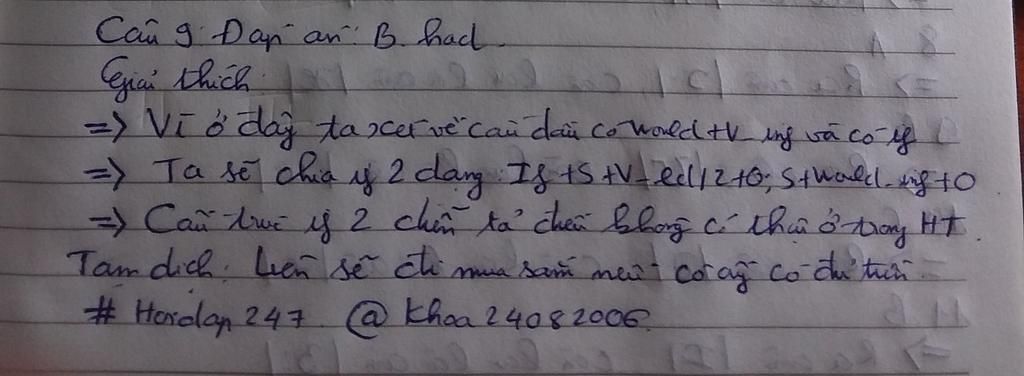 Câu 9: Đáp án: B. had.
Giải thích.
=> Vì ở đây ta xét vế câu đầu có would + V_ing và có if
=> Ta sẽ chia if 2 dạng: If + S + V_ed/2 + O; S + would_ing + O
=> Cấu trúc if 2 diễn tả điều không có thật ở trong HT.
Tạm dịch: Liên sẽ đi mua sắm nếu cô ấy có đủ tiền
# Hoidap247 @ Khoa24082006